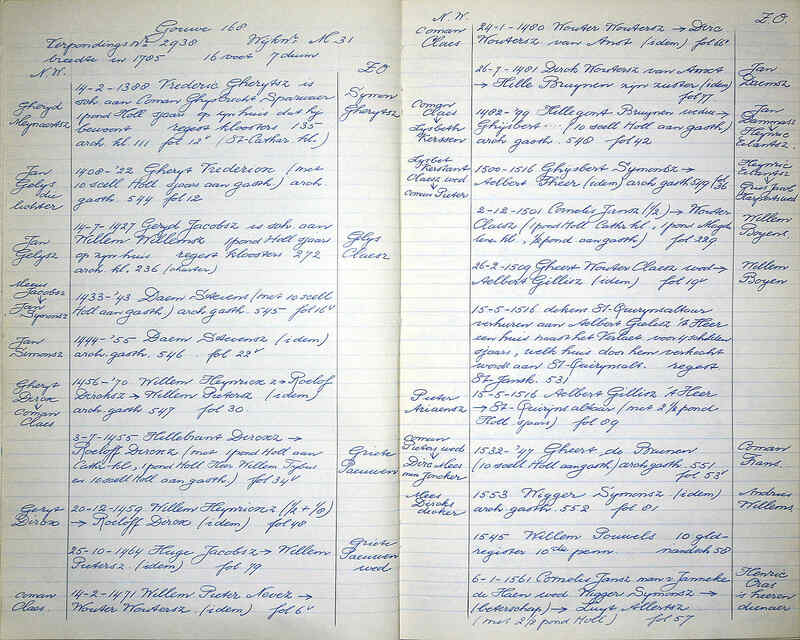 Gouwe 168
Verpondings Nr 2938 Wijk Nr M. 31
breedte in 1785 16 voet 7 duim
N.W. Z.O
Gheryd Meynaertsz
14-2-1388 Vrederic Gherytsz is
sch. aan Coman Ghysbrecht Sparwaer
1 pond Holl sjaars op zijn huis dat hij
bewoont regest kloosters 135
arch kl. 111 fol 12v (St-Cather. kl.)
Symon Gherytsz
Jan Gelys die luchter
1408-'22 Gheryt Vrederixz (met
10 scell Holl sjaars aan gasth) arch.
gasth. 544 fol 12
Jan Gelysz
14-7-1427 Geryd Jacobsz is sch. aan
Willem Willemsz 1 pond Holl sjaars
op zijn huis regest kloosters 272
arch. kl. 236 (charter)
Glys Claesz
Meeus Jacobsz ↓ Jan Symonsz
1433-'43 Daem Stevens (met 10 scell
Holl aan gasth) arch. gasth. 545 fol 16v
Jan Simonsz
1444-'55 Daem Stevensz (idem)
arch. gasth. 546 fol 22v
Gheryt Dircx ↓ Coman Claes
1456-'70 Willem Heynricxz → Roelof
Dircksz → Willem Pietersz (idem)
arch gasth 547 fol 30
3-7-1455 Hillebrant Dircxz →
Roeloff Dircxz (met 1 pond Holl aan
Cath-kl, 1 pond Holl Heer Willem
en 10 scell Holl aan gasth) fol 34v
Griete Paeuwen
Geryt Dircx
20-12-1459 Willem Heynricxz (½ + ⅛)
→ Roeloff Dircx (idem) fol 48
25-10-1464 Huge Jacobsz → Willem
Pietersz (idem) fol 79
Griete Paeuwen wed
Coman Claes.
14-2-1471 Willem Pieter Nevez →
Wouter Woutersz. (idem) fol 6v
N.W. Z.O.
Coman Claes
24-1-1480 Wouter Woutersz → Dirc
Woutersz van Amst (idem) fol 66v
26-7-1481 Dirck Woutersz van Amst
→ Hille Bruynen zijn zuster (idem)
fol 77
Coman Claes ↓ Lysbeth Kerssen
1482-'99 Hillegont Bruynen weduwe
Ghijsbert ... (10 scell Holl aan gasth)
arch gasth. 548 fol 42
Jan Dammasz Heynric Eelantsz.
Lysbet Kerstant Claesz wed ↓ Comen Pieter
1500-1516 Ghysbert Symonsz →
Aelbert Theer (idem) arch gasth 549 fol 36
Heynric Eelantsz
2-12-1501 Cornelis Jansz (½) → Wouter
Claesz (1 pond Holl Cath. kl, 1 pond
kl, ½ pond aan gasth) fol 229
Willem Boyens
26-2-1509 Gheert Wouter Claesz wed →
Aelbert Gillisz (idem) fol 19v
Willem Boyen
15-5-1516 dekens St-Quirynsaltaar
verhuren aan Aelbert Gielisz 't Heer
een huis naast het Verlaet voor 4 schilden
sjaars, welk huis door hem verkocht
wordt aan St-Quirynsalt. regest
St. Jansk. 531
Pieter Ariaensz
15-5-1516 Aelbert Gillisz 't Heer
→ St-Quirynsaltaar (met 2½ pond
Holl sjaars) fol 89
Coman Pieters wed ↓ Dirc Mees
1532-'47 Gheert de Brunen
(10 scell Holl aan gasth) arch gasth. 551
fol 53v
Coman Frans.
Mees Dircks
1553 Wigger Symonsz (idem)
arch gasth. 552 fol 81
Andries Willems.
1545 Willem Pouwels 10 gld-
register 10de penn. 58
6-1-1561 Cornelis Jansz man v Janneke
de Haen wed. Wigger Symonsz →
(beterschap) → Luyt Allertsz
(met 2½ pond Holl) fol 57
Henric Cras is heeren dienaer